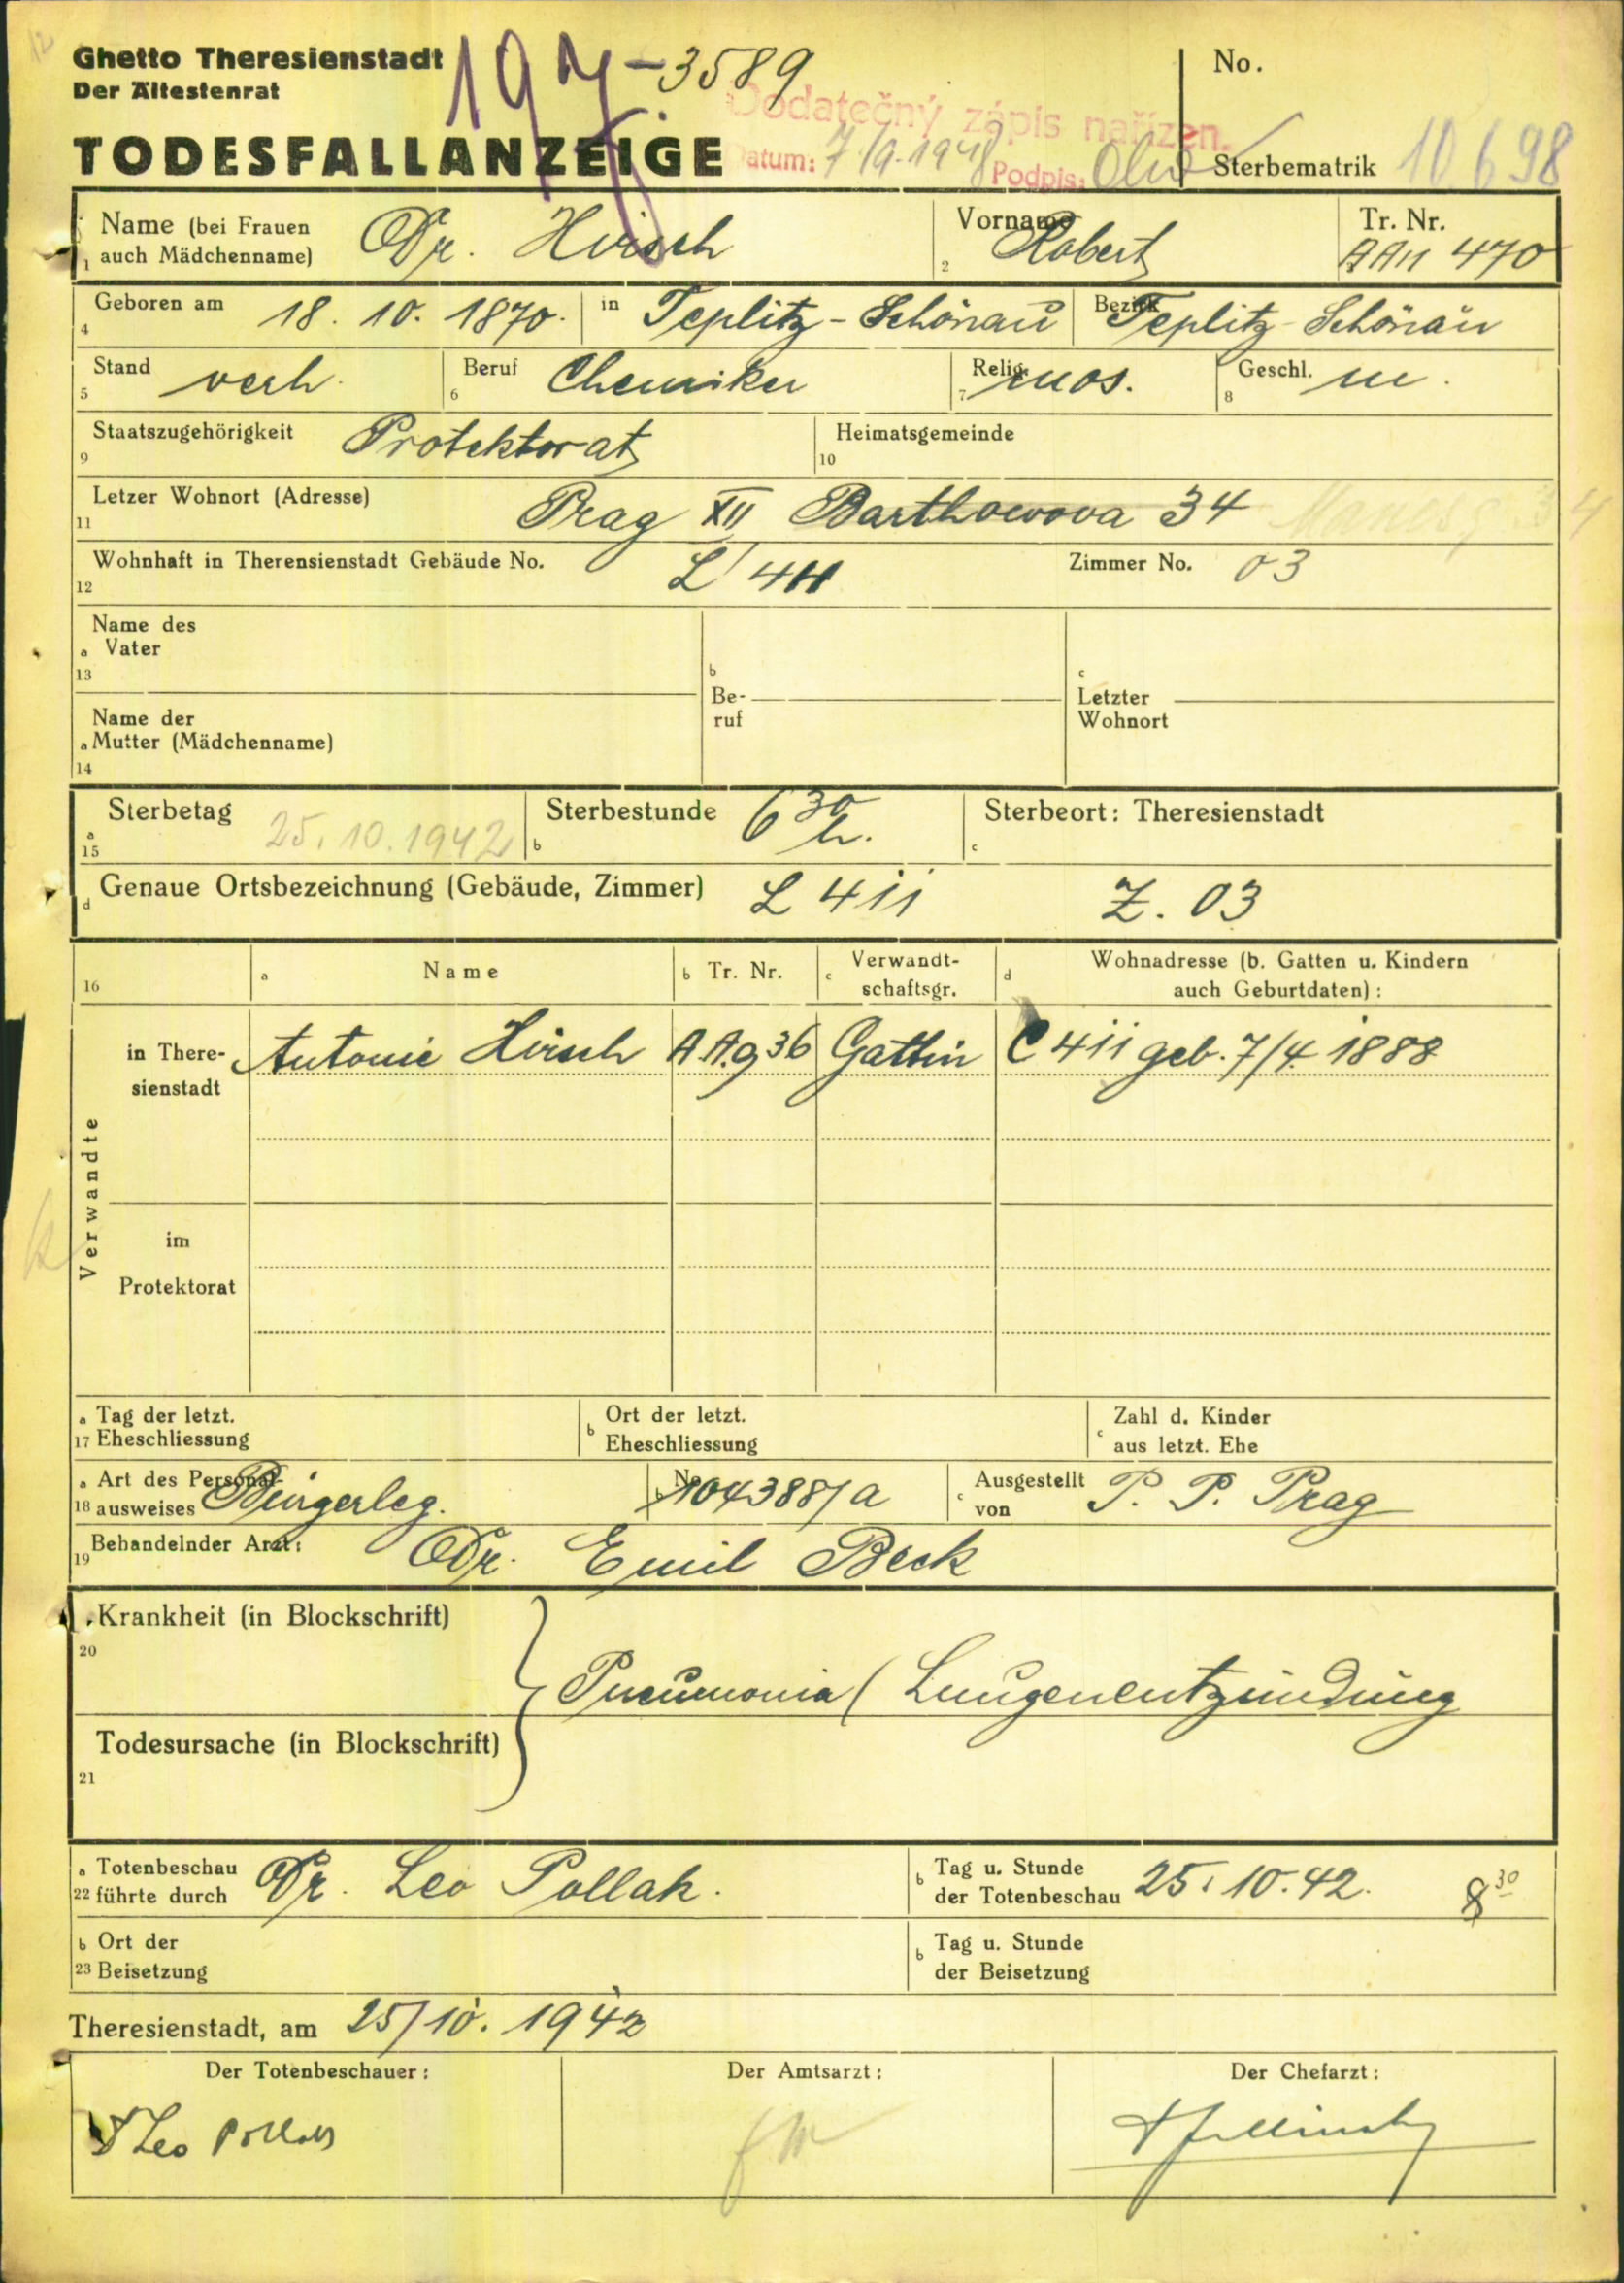 Ghetto Theresienstadt
Der Ältestenrat
TODESFALLANZEIGE
197-3589
Dodatečný zápis nařízen.
Datum: 7/9.1948 Podpis:
No.
Sterbematrik 10698
Name (bei Frauen auch Mädchenname) Dr. Hirsch
1
Vorname Robert
2
Tr. Nr. AAu 470
Geboren am 18. 10. 1870. in Teplitz-Schönau Bezirk Teplitz-Schönau
4
Stand verh. Beruf Chemiker Relig. mos. Geschl. m.
5 6 7 8
Staatszugehörigkeit Protektorat Heimatsgemeinde
9 10
Letzer Wohnort (Adresse) Prag XII Barthowova 34
11
Wohnhaft in Therensienstadt Gebäude No. L 411 Zimmer No. 03
12
Name des
a Vater
13
b Beruf
c Letzter Wohnort
Name der
a Mutter (Mädchenname)
14
Sterbetag 25.10.1942 Sterbestunde 6 30 h. Sterbeort: Theresienstadt
a 15 b c
d Genaue Ortsbezeichnung (Gebäude, Zimmer) L 411 Z. 03
16 a Name b Tr. Nr. c Verwandtschaftsgr. d Wohnadresse (b. Gatten u. Kindern auch Geburtdaten):
Verwandte
in Theresienstadt Antonie Hirsch A.A.g 36 Gattin C 411 geb. 7/4. 1888
im
Protektorat
a Tag der letzt.
17 Eheschliessung
b Ort der letzt.
Eheschliessung
c Zahl d. Kinder
aus letzt. Ehe
a Art des Personal-
18 ausweises Bürgerleg.
b No 104388/a
c Ausgestellt von P. P. Prag
19 Behandelnder Arzt: Dr. Emil Beck
Krankheit (in Blockschrift)
20
Pneumonia (Lungenentzündung
Todesursache (in Blockschrift)
21
a Totenbeschau
22 führte durch Dr. Leo Pollak.
b Tag u. Stunde
der Totenbeschau 25.10.42. 8 30
b Ort der
23 Beisetzung
b Tag u. Stunde
der Beisetzung
Theresienstadt, am 25/10. 1942
Der Totenbeschauer: Der Amtsarzt: Der Chefarzt:
Leo Pollak